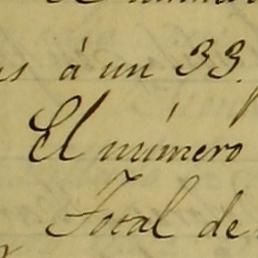 á un 33.
El número
Total de